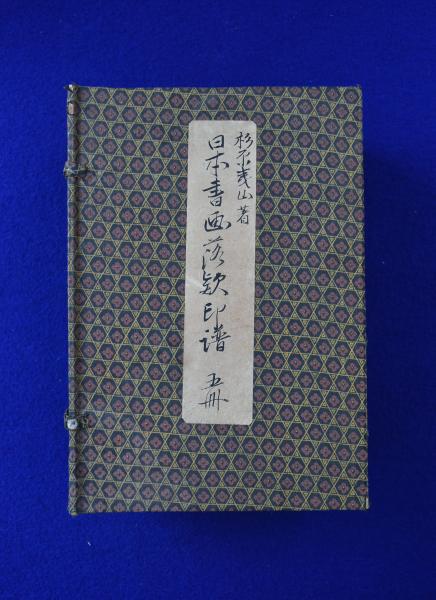 杉原夷山著
日本書画落款印譜 五冊